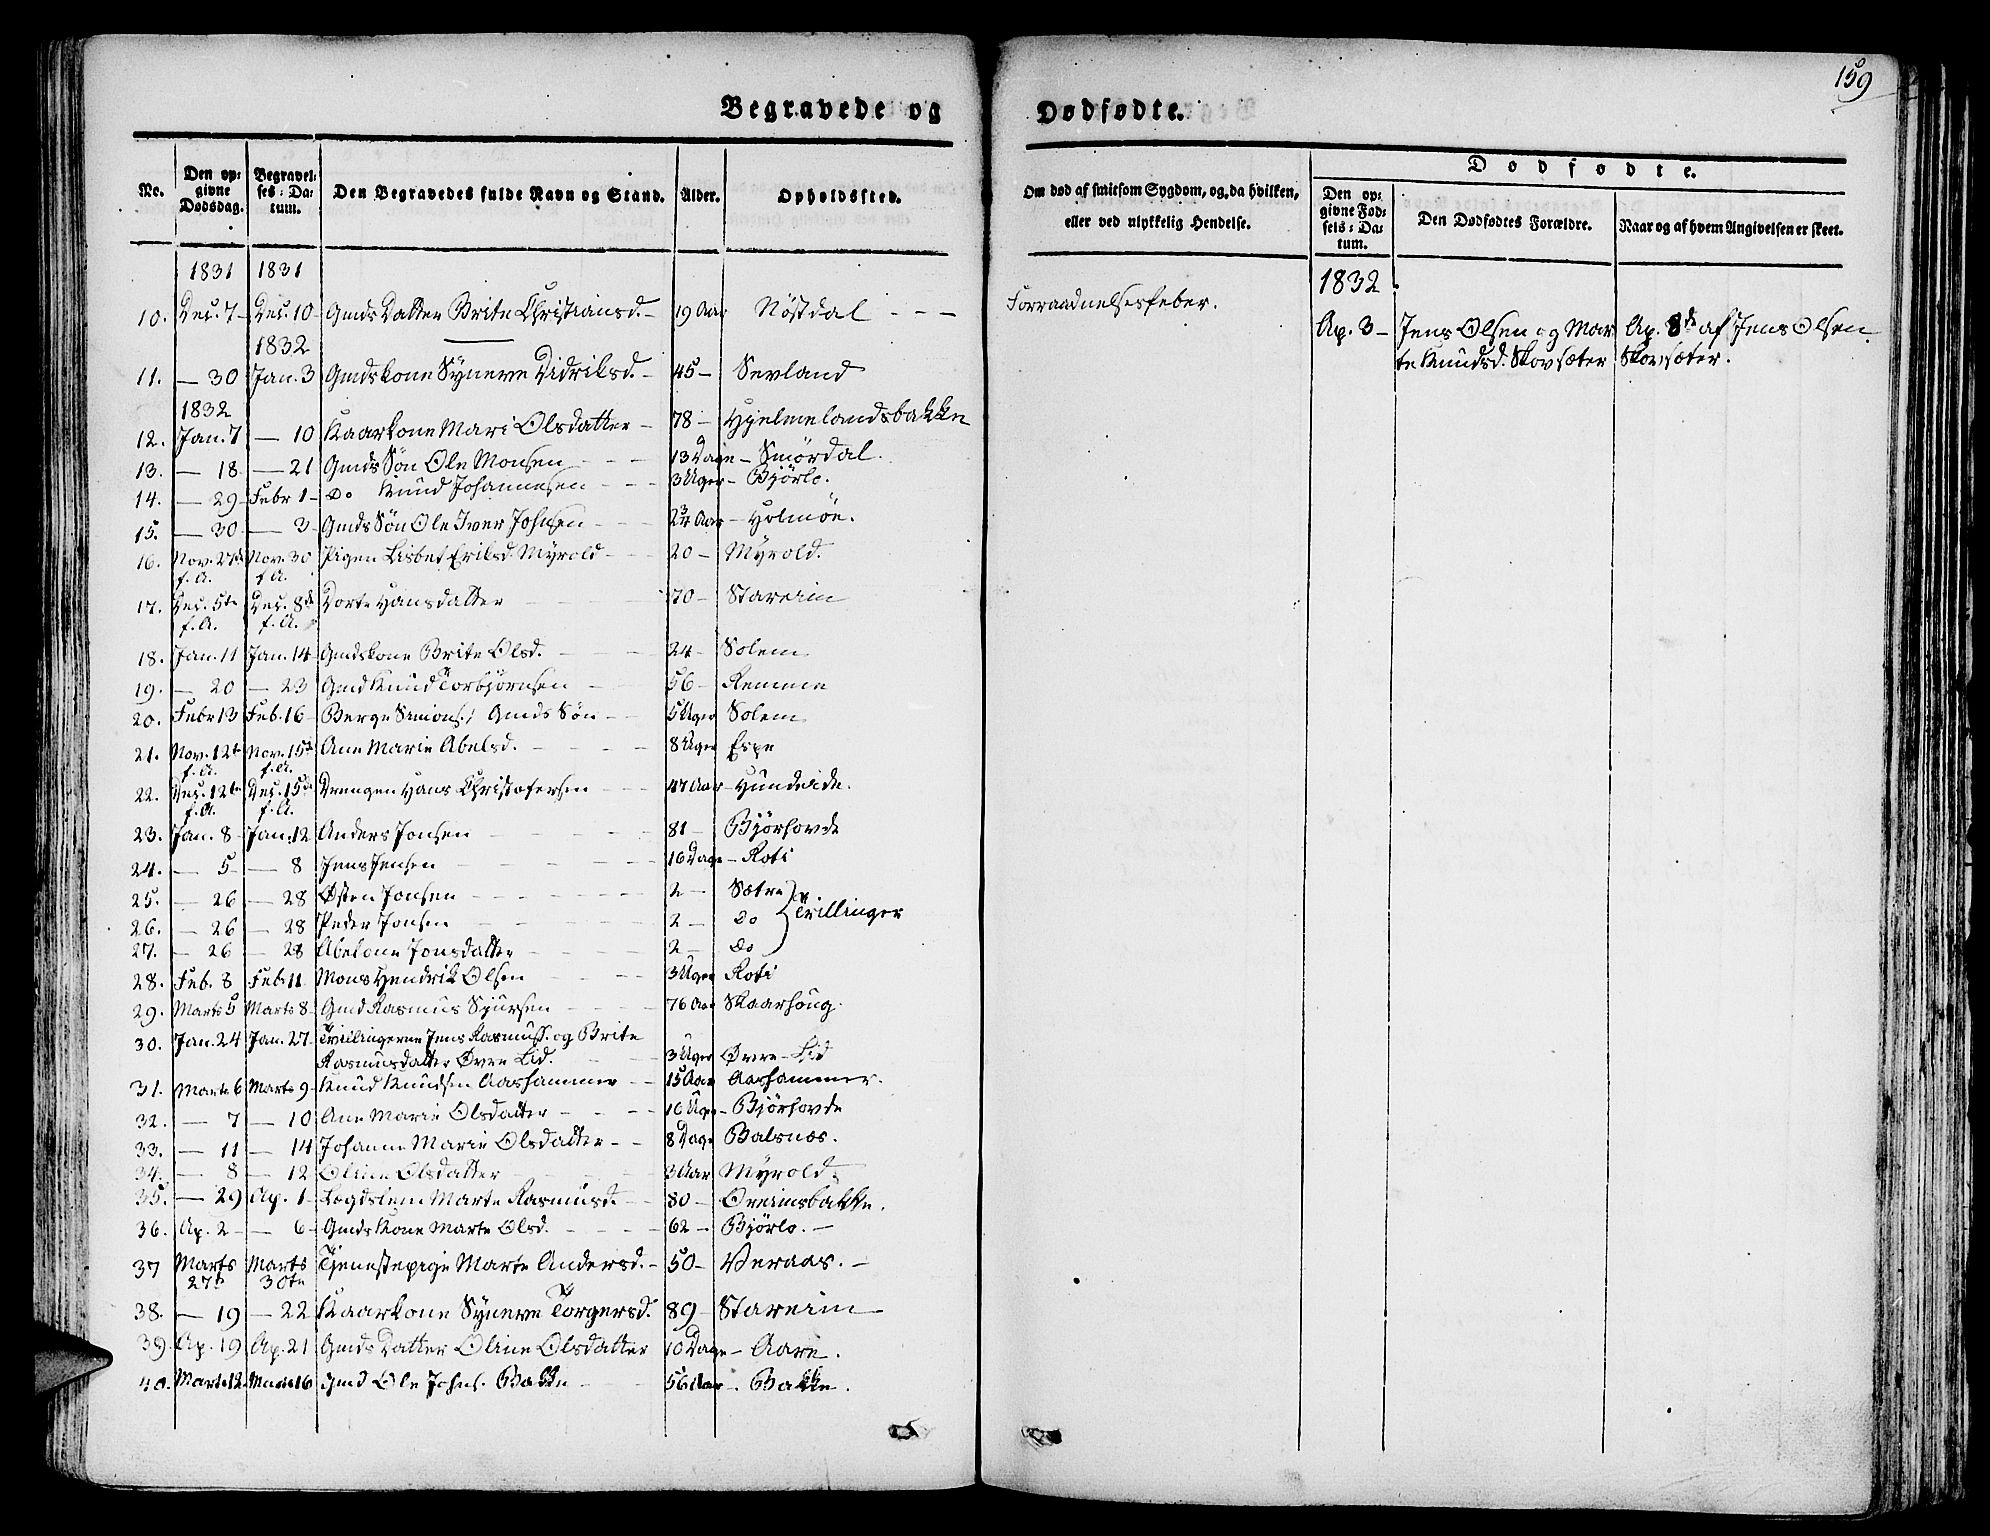 159
Begravede og Dødfødte.
No. Den opgivne Dødsdag. Begravelses-Datum. Den Begravedes fulde Navn og Stand. Alder. Opholdssted.
Om død af smitsom Sygdom, og da hvilken, eller ved ulykkelig Hendelse.
Dødfødte.
Den opgivne Fødsels-Datum. Den Dødfødtes Forældre. Naar og af hvem Angivelsen er skeet.
1831 1831
10. Dec. 7 Dec. 10 Gmds Datter Brite Christiansd. 19 Aar Nöstdal Forraadnelsesfeber.
1832
11. — 30 Jan. 3 Gmdskone Synneve Didriksd. 45 Sevland
1832
12. Jan. 7 — 10 Kaarkone Mari Olsdatter 78 Hjelmelandsbakke
13. — 18 — 21 Gmds Søn Ole Monsen 13 Dage Smördal.
14. — 29 Febr 1 Do Knud Johannesen 3 Uger Bjørlo.
15. — 30 — 3 Gmds Søn Ole Iver Johnsen 2¾ Aar Holmöe.
16. Nov. 27de Nov. 30 Pigen Lisbet Eriksd. Myrold 20 Myrold.
f. A. f. A.
17. Dec. 5te Dec. 8de Dorte Hansdatter 70 Stareim
f. A. f. A.
18. Jan. 11 Jan. 14 Gmdskone Brite Olsd. 24 Solem
19. — 20 — 23 Gmd Knud Torbjörnsen 56 Remme
20. Febr 13 Feb. 16 Berge Simons. / Gmds Søn 5 Uger Solem
21. Nov. 12te Nov. 15de Ane Marie Abelsd. 8 Uger Espe
f. A. f. A.
22. Dec. 12te Dec. 15de Drengen Hans Christofersen 47 Aar Hundeide.
f. A. f. A.
23. Jan. 8 Jan. 12 Anders Jonsen 81 Bjørhovde
24. — 5 — 8 Jens Jensen 16 Dage Roti
25. — 26 — 28 Østen Jonsen 2 Sætre
26. — 26 — 28 Peder Jonsen 2 Do Trillinger
27. — 26 — 28 Abelone Jonsdatter 2 Do
28. Feb. 8 Feb. 11 Mons Hendrik Olsen 3 Uger Roti
29. Marts 5 Marts 8 Gmd Rasmus Sjursen 76 Aar Skaarhoug.
30. Jan. 24 Jan. 27 Tvillingerne Jens Rasmuss. og Brite
Rasmusdatter Øvre Lid. 3 Uger Øvre-Lid
31. Marts 6 Marts 9 Knud Knudsen Aarhammer 15 Aar Aarhammer.
32. — 7 — 10 Ane Marie Olsdatter 16 Uger Bjørhovde
33. — 11 — 14 Johanne Marie Olsdatter 8 Dage Balsnæs.
34. — 8 — 12 Oline Olsdatter 3 Aar Myrold
35. — 29 Ap. 1 Lægdslem Marte Rasmusd. 80 Oreimsbakke.
36. Ap. 2 — 6 Gmdskone Marte Olsd. 62 Bjørlo.
37 Marts Marts Tjenestepige Marte Andersd. 50 Veraas.
27de 30te
38. — 19 — 22 Kaarkone Synneve Torgersd. 89 Stareim
39. Ap. 19 Ap. 21 Gmds Datter Oline Olsdatter 10 Dage Aare.
40. Marts 12 Marts 16 Gmd Ole Johns. Bakke 56 Aar Bakke.
1832
Ap. 3 Jens Olsen og Mar- Ap. 8de af Jens Olsen
te Knudsd. Skovsæter Skovsæter.